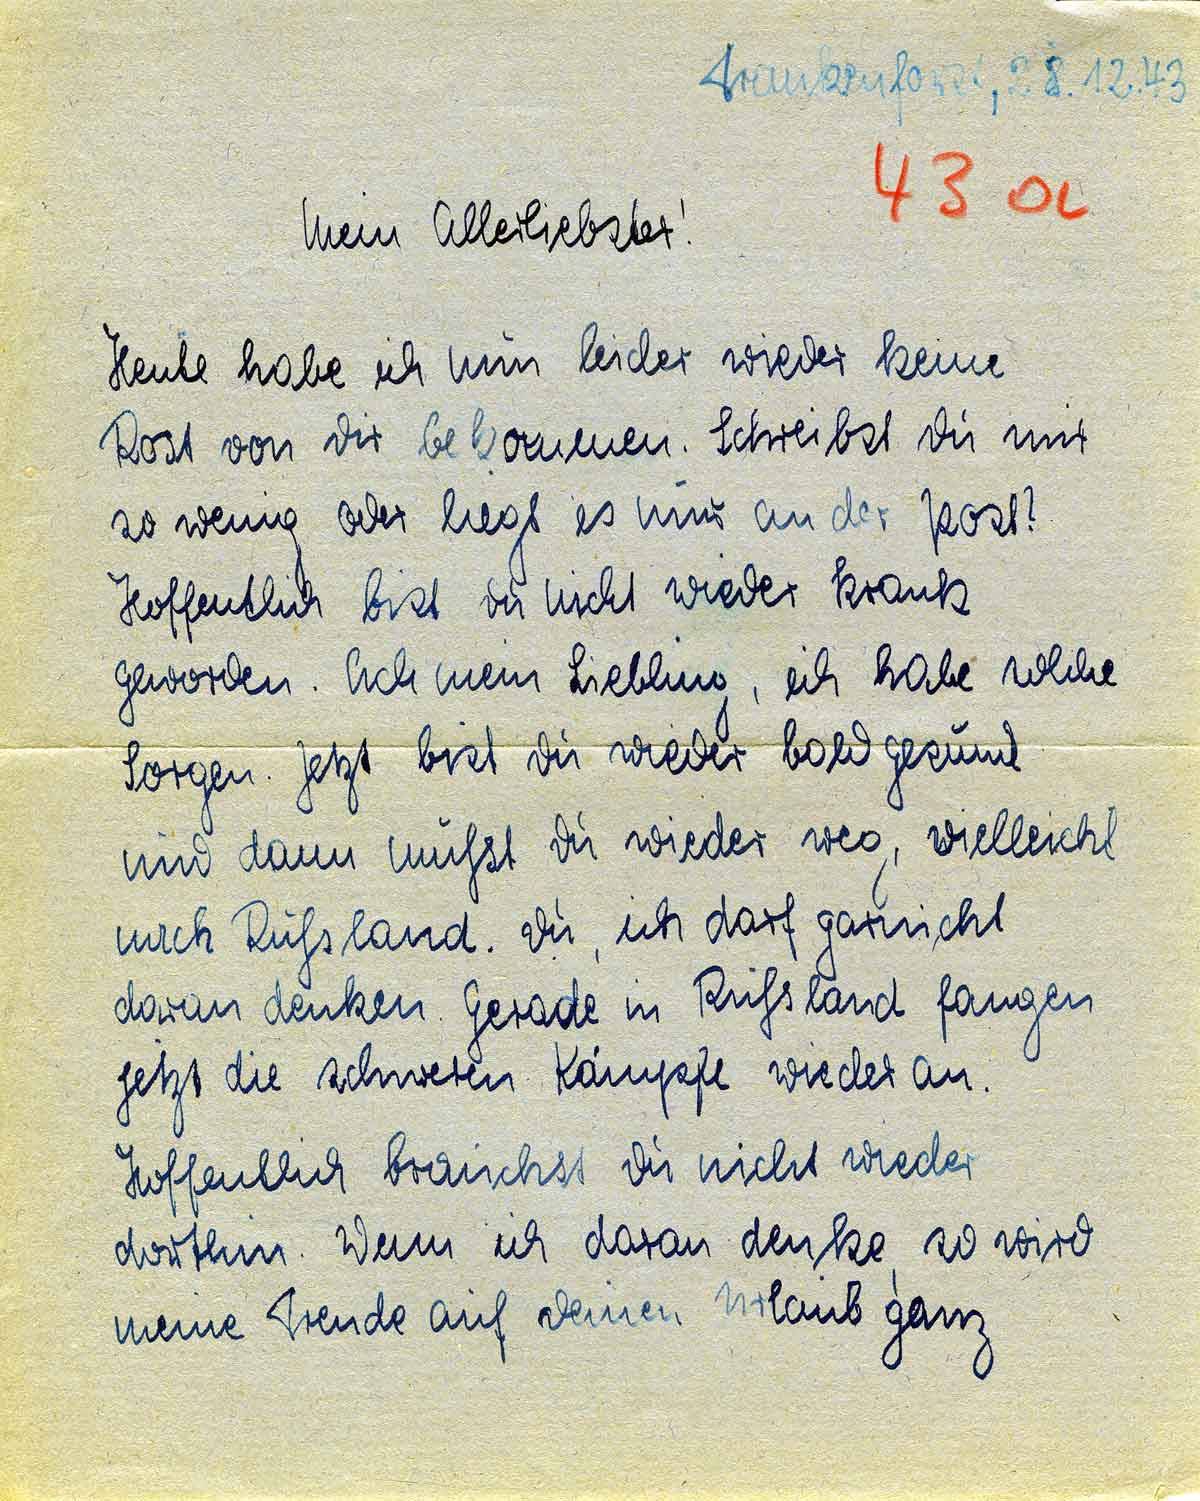 Frankenforst, 28.12.43
43 OL
Mein Allerliebster!
Heute habe ich nun leider wieder keine
Post von dir bekommen. Schreibst du mir
so wenig oder liegt es nur an der Post?
Hoffentlich bist du nicht wieder krank
geworden. Ach mein Liebling, ich habe solche
Sorgen. Jetzt bist du wieder bald gesund
und dann mußt du wieder weg, vielleicht
nach Rußland. Du, ich darf garnicht
daran denken. Gerade in Rußland fangen
jetzt die schweren Kämpfe wieder an.
Hoffentlich brauchst du nicht wieder
dorthin. Wenn ich daran denke, so wird
meine Freude auf deinen Urlaub ganz